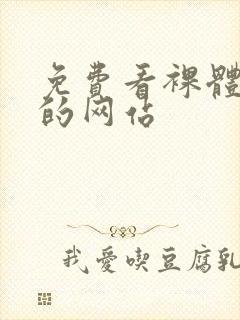 免費看裸體
的网站
我愛喫豆腐乳